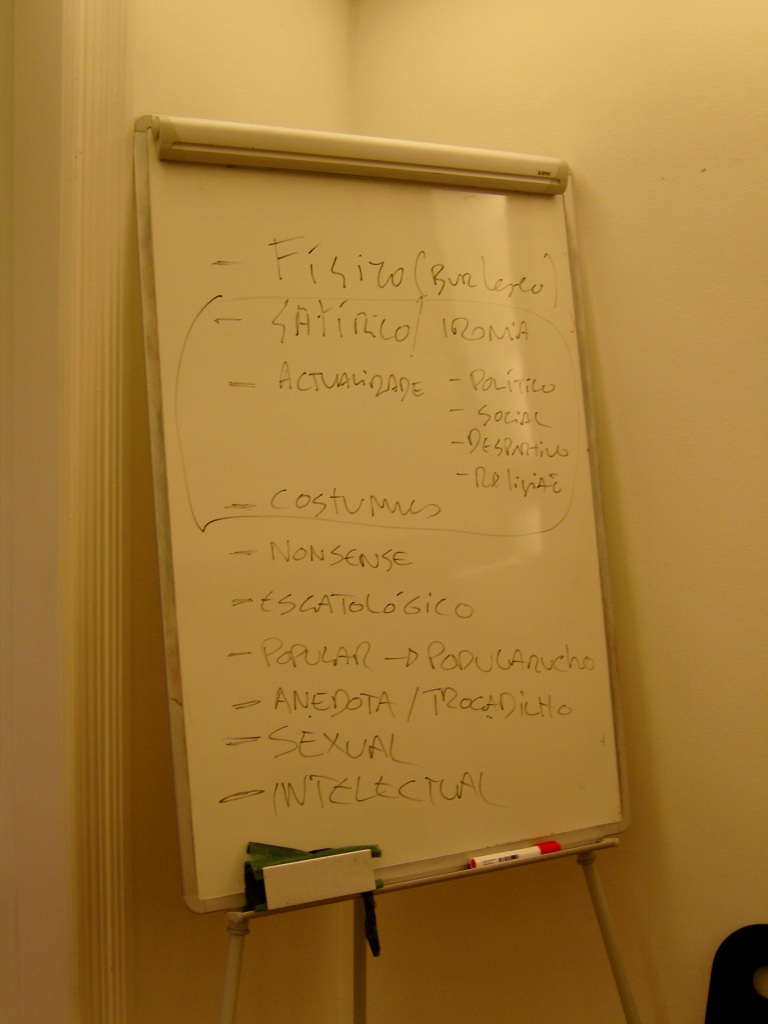 - Físico (Burlesco)
- SATÍRICO / IRONIA
- ACTUALIDADE - POLÍTICO
- SOCIAL
- DESPORTIVO
- Religião
- COSTUMES
- NONSENSE
- ESCATOLÓGICO
- POPULAR → POPULARUCHO
- ANEDOTA / TROCADILHO
- SEXUAL
- INTELECTUAL